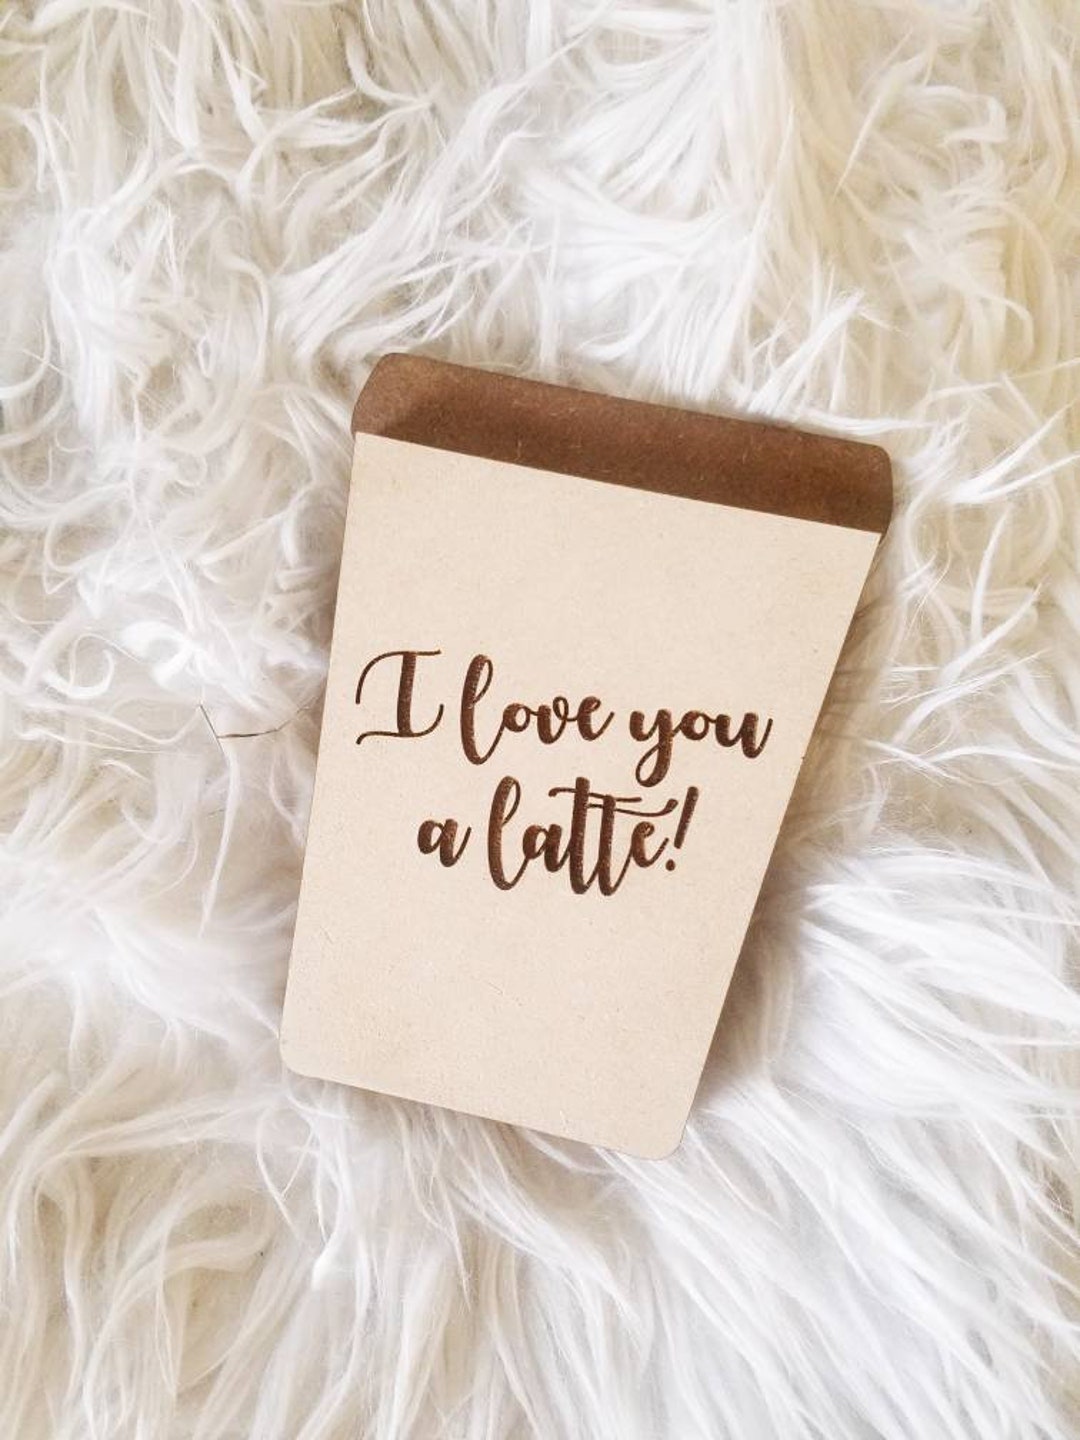 I love you
a latte!